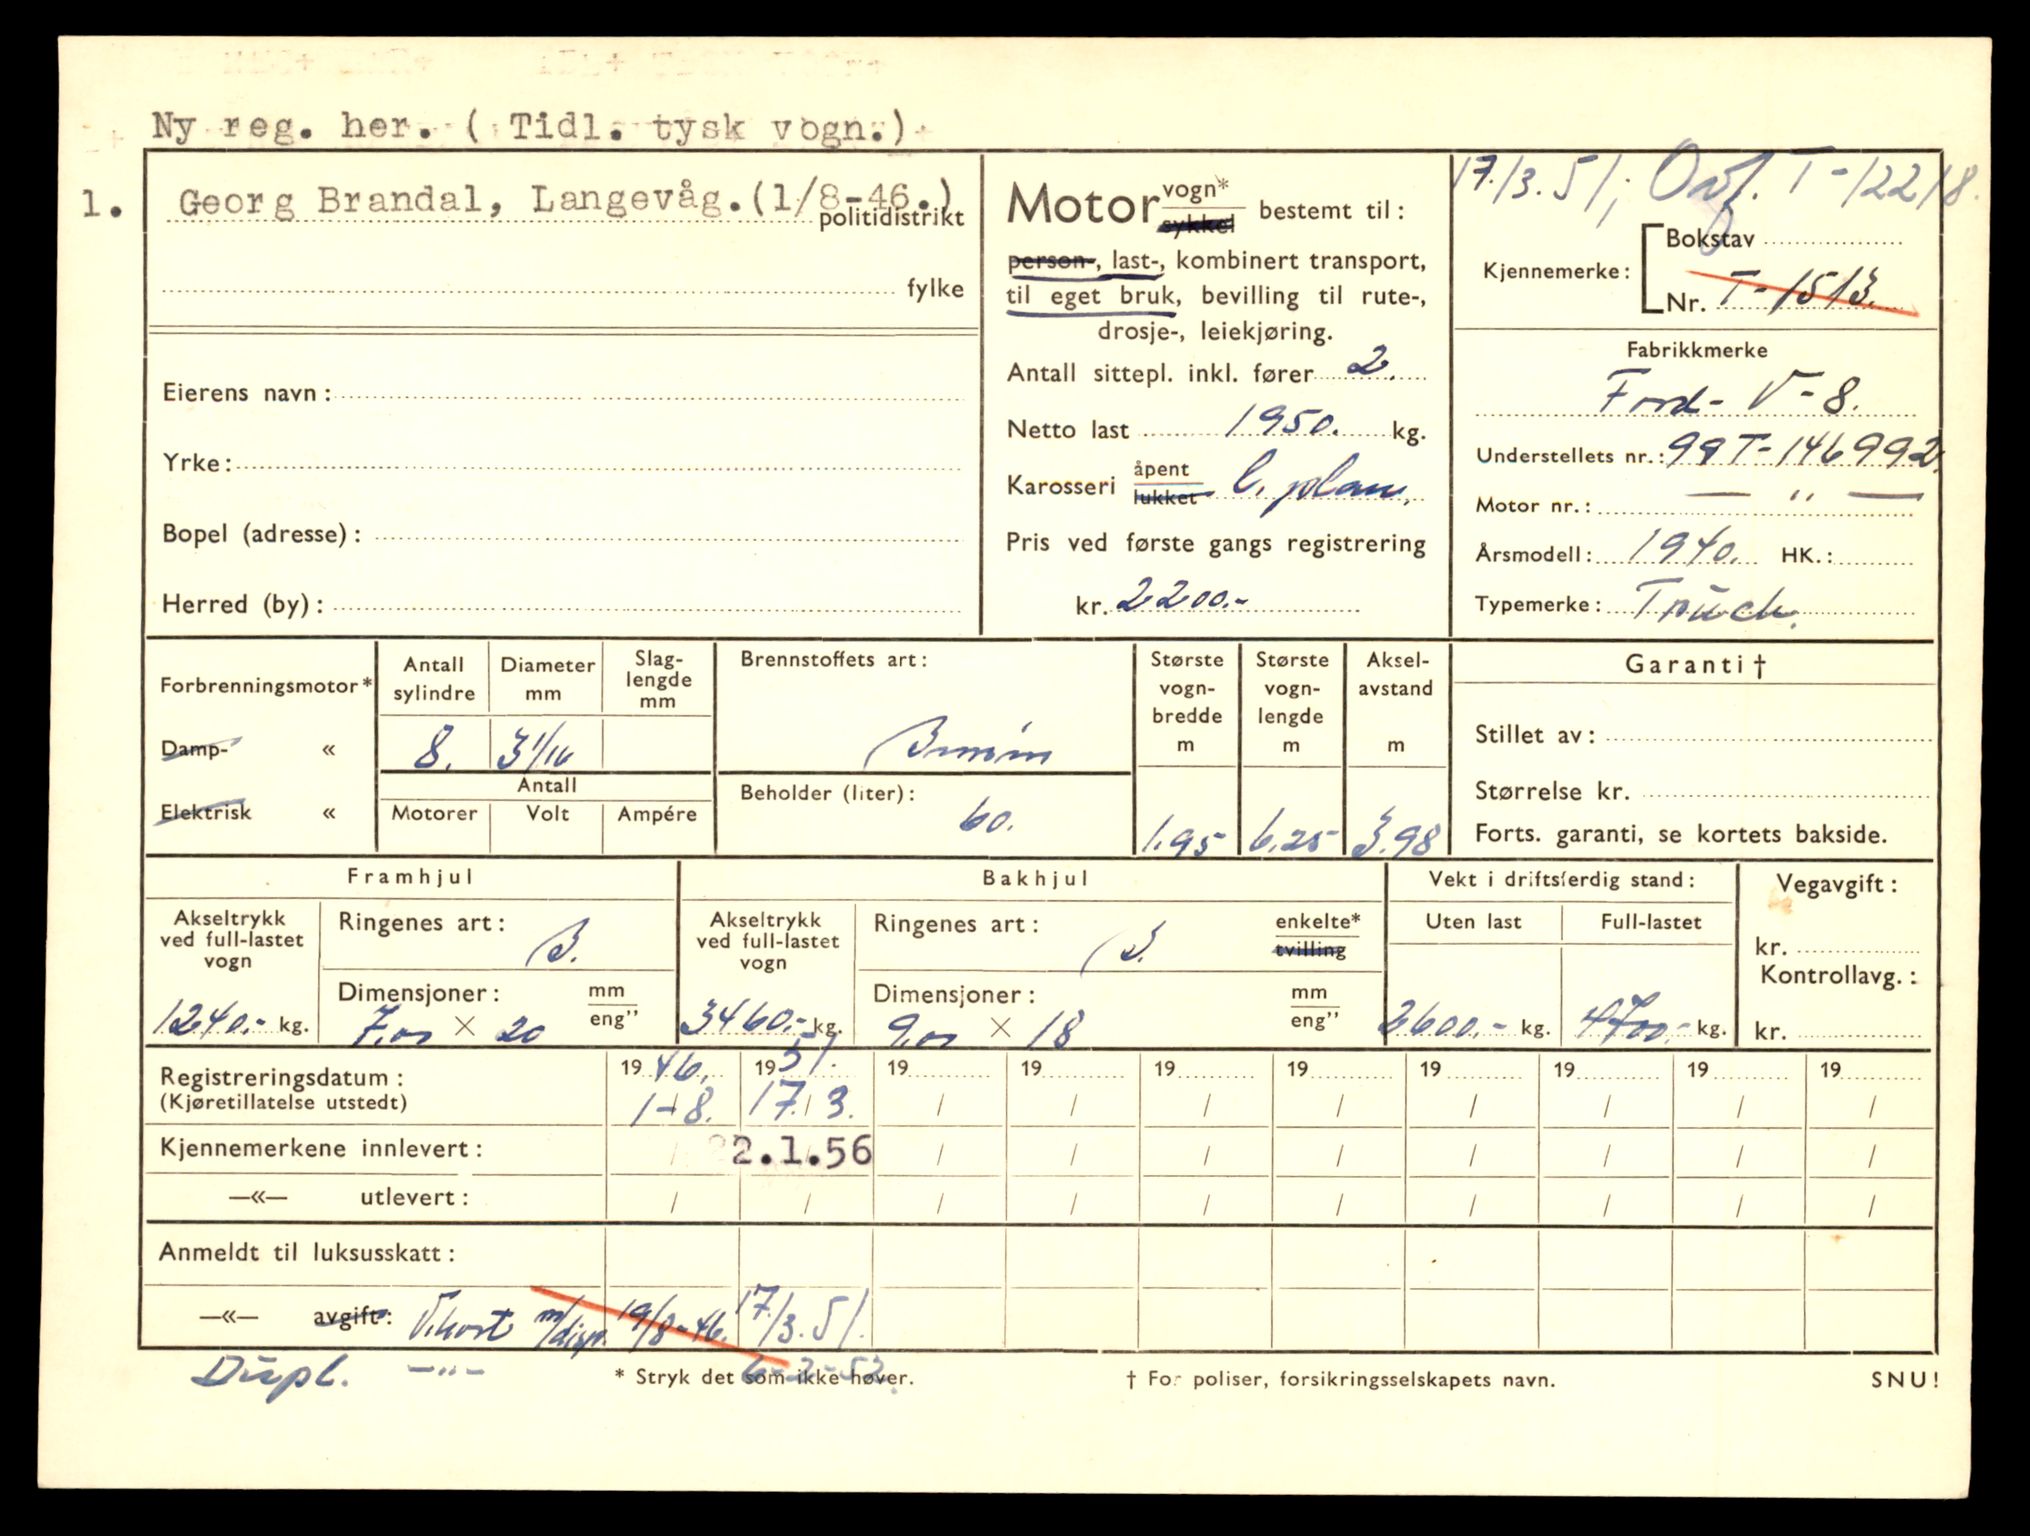 Ny reg. her. ( Tidl. tysk vogn.)
1. Georg Brandal, Langevåg.(1/8-46.)
politidistrikt
fylke
Eierens navn:
Yrke:
Bopel (adresse):
Herred (by):
Motor vogn* sykkel bestemt til:
person-, last-, kombinert transport,
til eget bruk, bevilling til rute-,
drosje-, leiekjøring.
Antall sittepl. inkl. fører 2.
Netto last 1950. kg.
Karosseri åpent lukket l. plan.
Pris ved første gangs registrering
kr. 2200.-
17./3. 51; Ovf. T-12218.
Kjennemerke:
Bokstav
Nr. T-1513.
Fabrikkmerke
Ford- V-8.
Understellets nr.: 99T-146992.
Motor nr.: — " —
Årsmodell: 1940. HK.:
Typemerke: Truck.
Forbrenningsmotor*
Damp- «
Elektrisk «
Antall sylindre
8.
Diameter mm
3 1/16
Slaglengde mm
Antall
Motorer Volt Ampére
Brennstoffets art:
Bensin
Beholder (liter):
60.
Største vognbredde m
1.95
Største vognlengde m
6.25
Akselavstand m
3.98
Garanti†
Stillet av:
Størrelse kr.
Forts. garanti, se kortets bakside.
Framhjul
Akseltrykk ved full-lastet vogn
1240.- kg.
Ringenes art: B.
Dimensjoner: mm eng”
7.00 × 20
Bakhjul
Akseltrykk ved full-lastet vogn
3460.- kg.
Ringenes art: B. enkelte* tvilling
Dimensjoner: mm eng”
9.00 × 18
Vekt i driftsferdig stand:
Uten last Full-lastet
2600.- kg. 4700.- kg.
Vegavgift:
kr.
Kontrollavg.:
kr.
Registreringsdatum: 19 46. 19 51. 19 19 19 19 19 19 19 19
(Kjøretillatelse utstedt) 1-8. 17./3. / / / / / / / /
Kjennemerkene innlevert: / 2.1.56 / / / / / / / /
—«— utlevert: / / / / / / / / / /
Anmeldt til luksusskatt:
—«— avgift: V.kort m/disp. 19/8-46. 17./3.51.
Dupl. —"— 6-2-52.
* Stryk det som ikke høver.
† For poliser, forsikringsselskapets navn.
SNU!